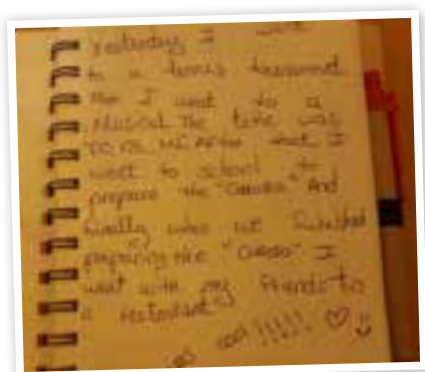 Yesterday I went
to a tennis
I went to a
Musical The time was
After that I
went to school to
prepare the " " And
finally when we finished
preparing the " " I
went with my friends to
a restaurant
cool !!!!! ♡ :)